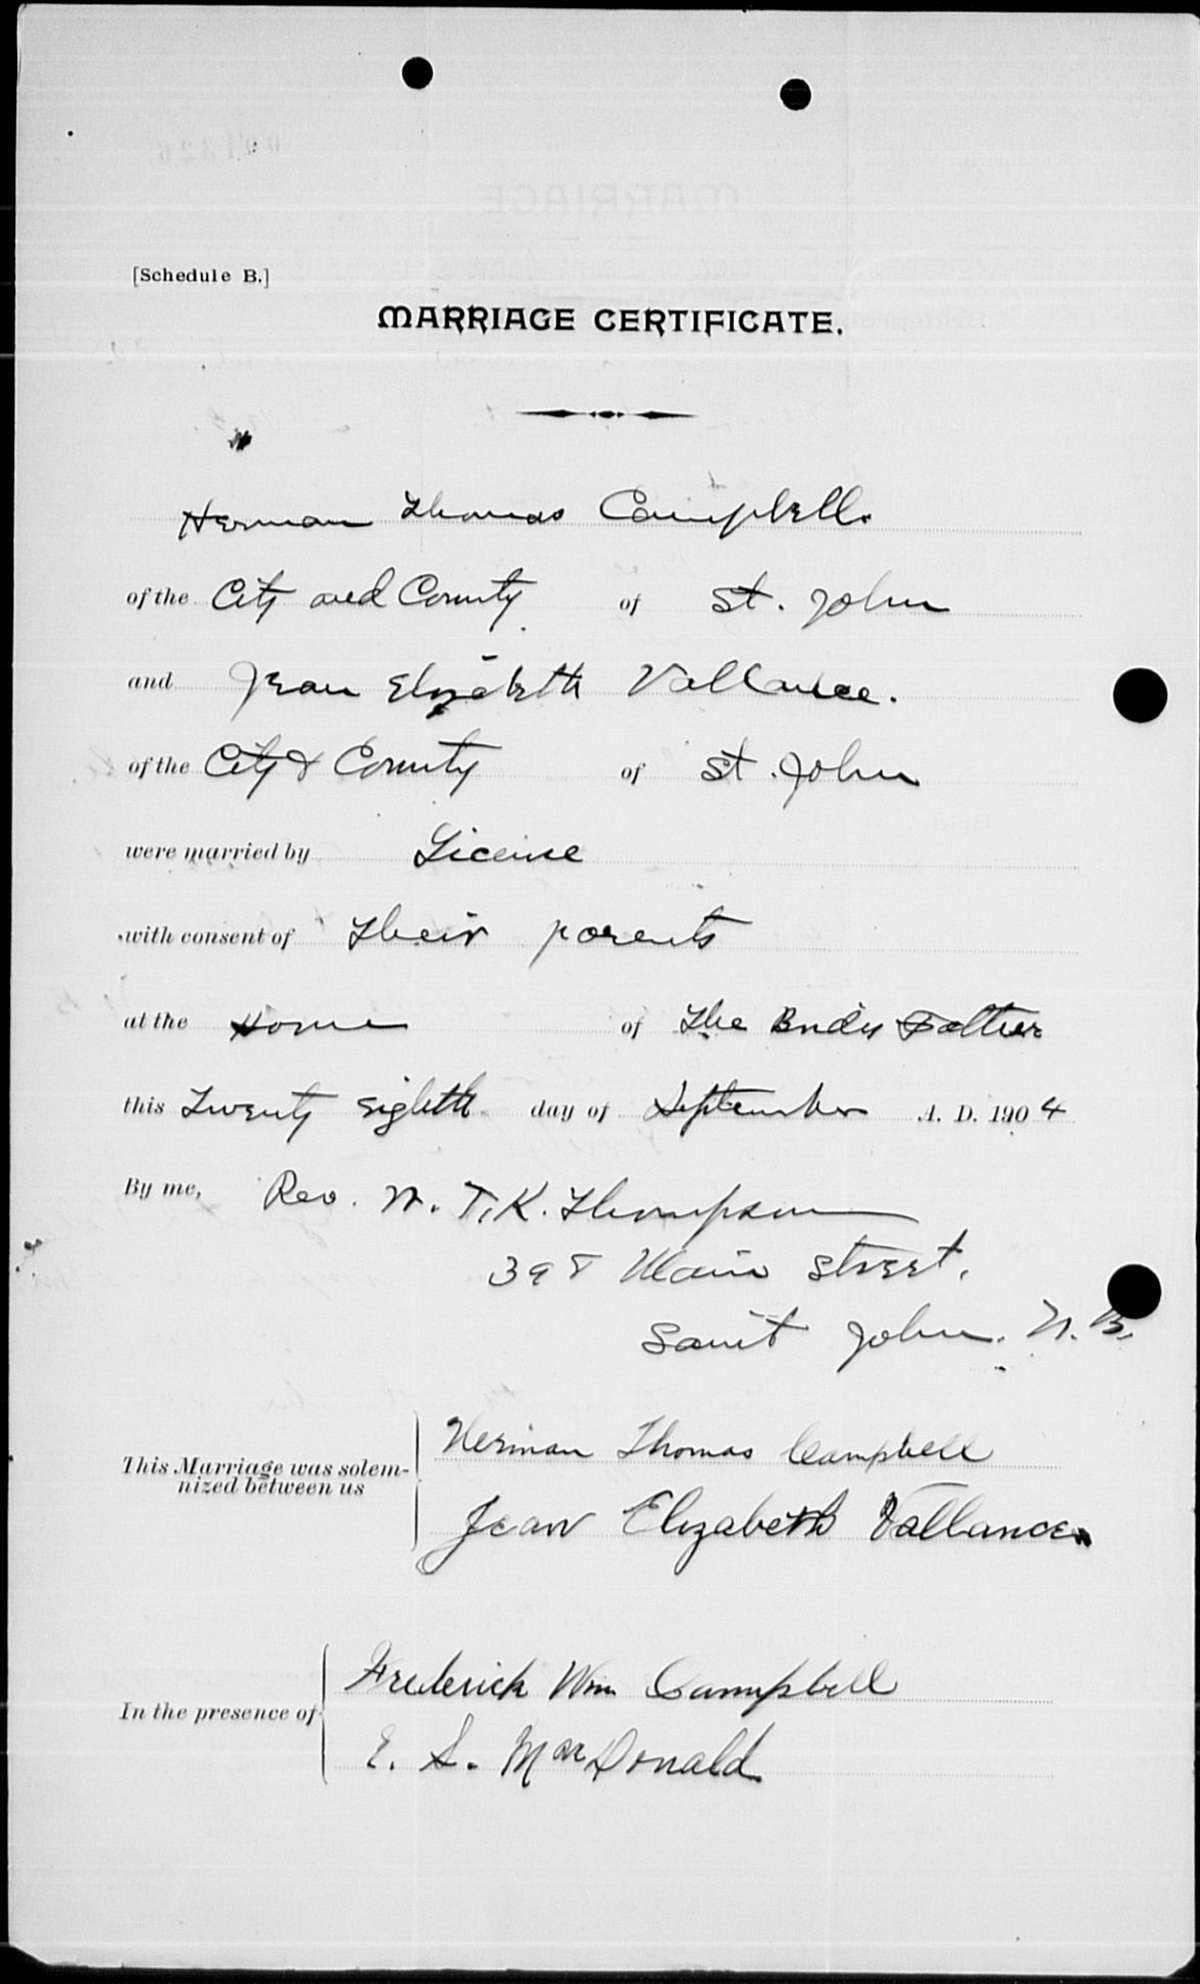 [Schedule B.]
MARRIAGE CERTIFICATE.
Herman Thomas Campbell.
of the City and County of St. John
and Jean Elizabeth Vallance.
of the City & County of St. John
were married by License
with consent of Their parents
at the Home of The Brides Father
this Twenty Eighth day of September A. D. 1904
By me, Rev. W. T. K. Thompson
398 Main Street,
Saint John. N. B.
This Marriage was solem-
nized between us
Herman Thomas Campbell
Jean Elizabeth Vallance.
In the presence of
Frederick Wm Campbell
E. S. MacDonald